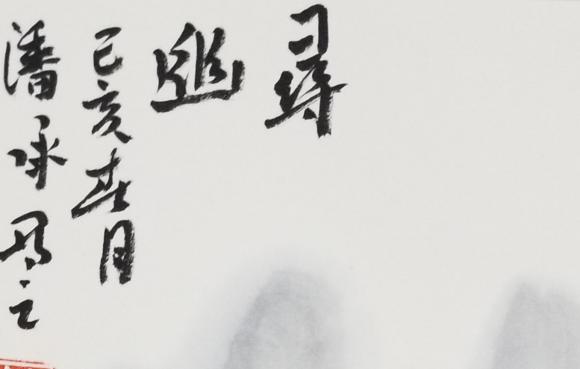 尋
幽
己亥春月
潘承㝵之